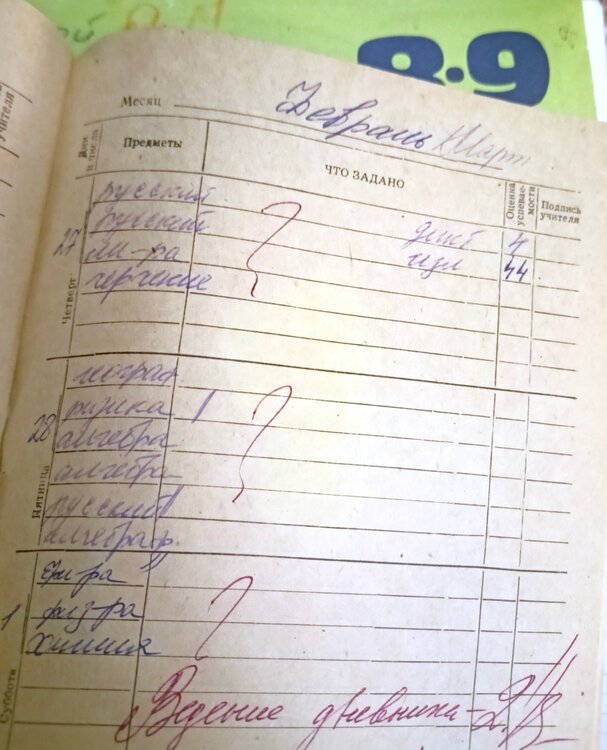 8-9
Месяц Февраль Март
Дни и числа
Предметы
ЧТО ЗАДАНО
Оценка успевае-мости
Подпись учителя
учителя
Четверг
27
русский
русский дикт 4
ли-ра изл 44
черчение
Пятница
28
географ
физика
алгебра
алгебра
русский
алгебра ф.
Суббота
1
физ-ра
химия
Ведение дневника - 2